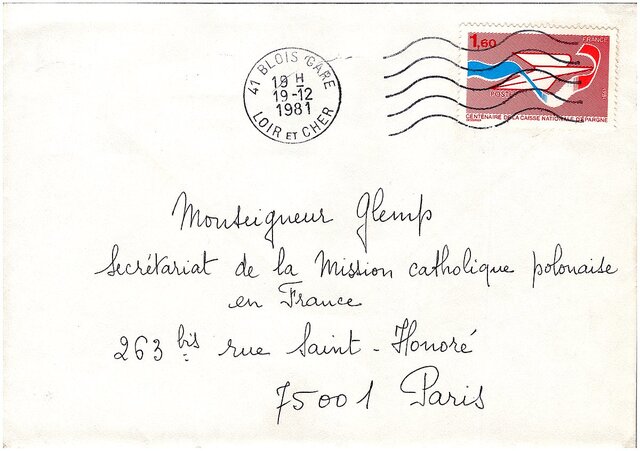 41 BLOIS GARE
19 H
19-12
1981
LOIR ET CHER
1,60
FRANCE
POSTES
CENTENAIRE DE LA CAISSE NATIONALE D'EPARGNE
Monseigneur Glemp
Secrétariat de la Mission catholique polonaise
en France
263 bis rue Saint-Honoré
75001 Paris